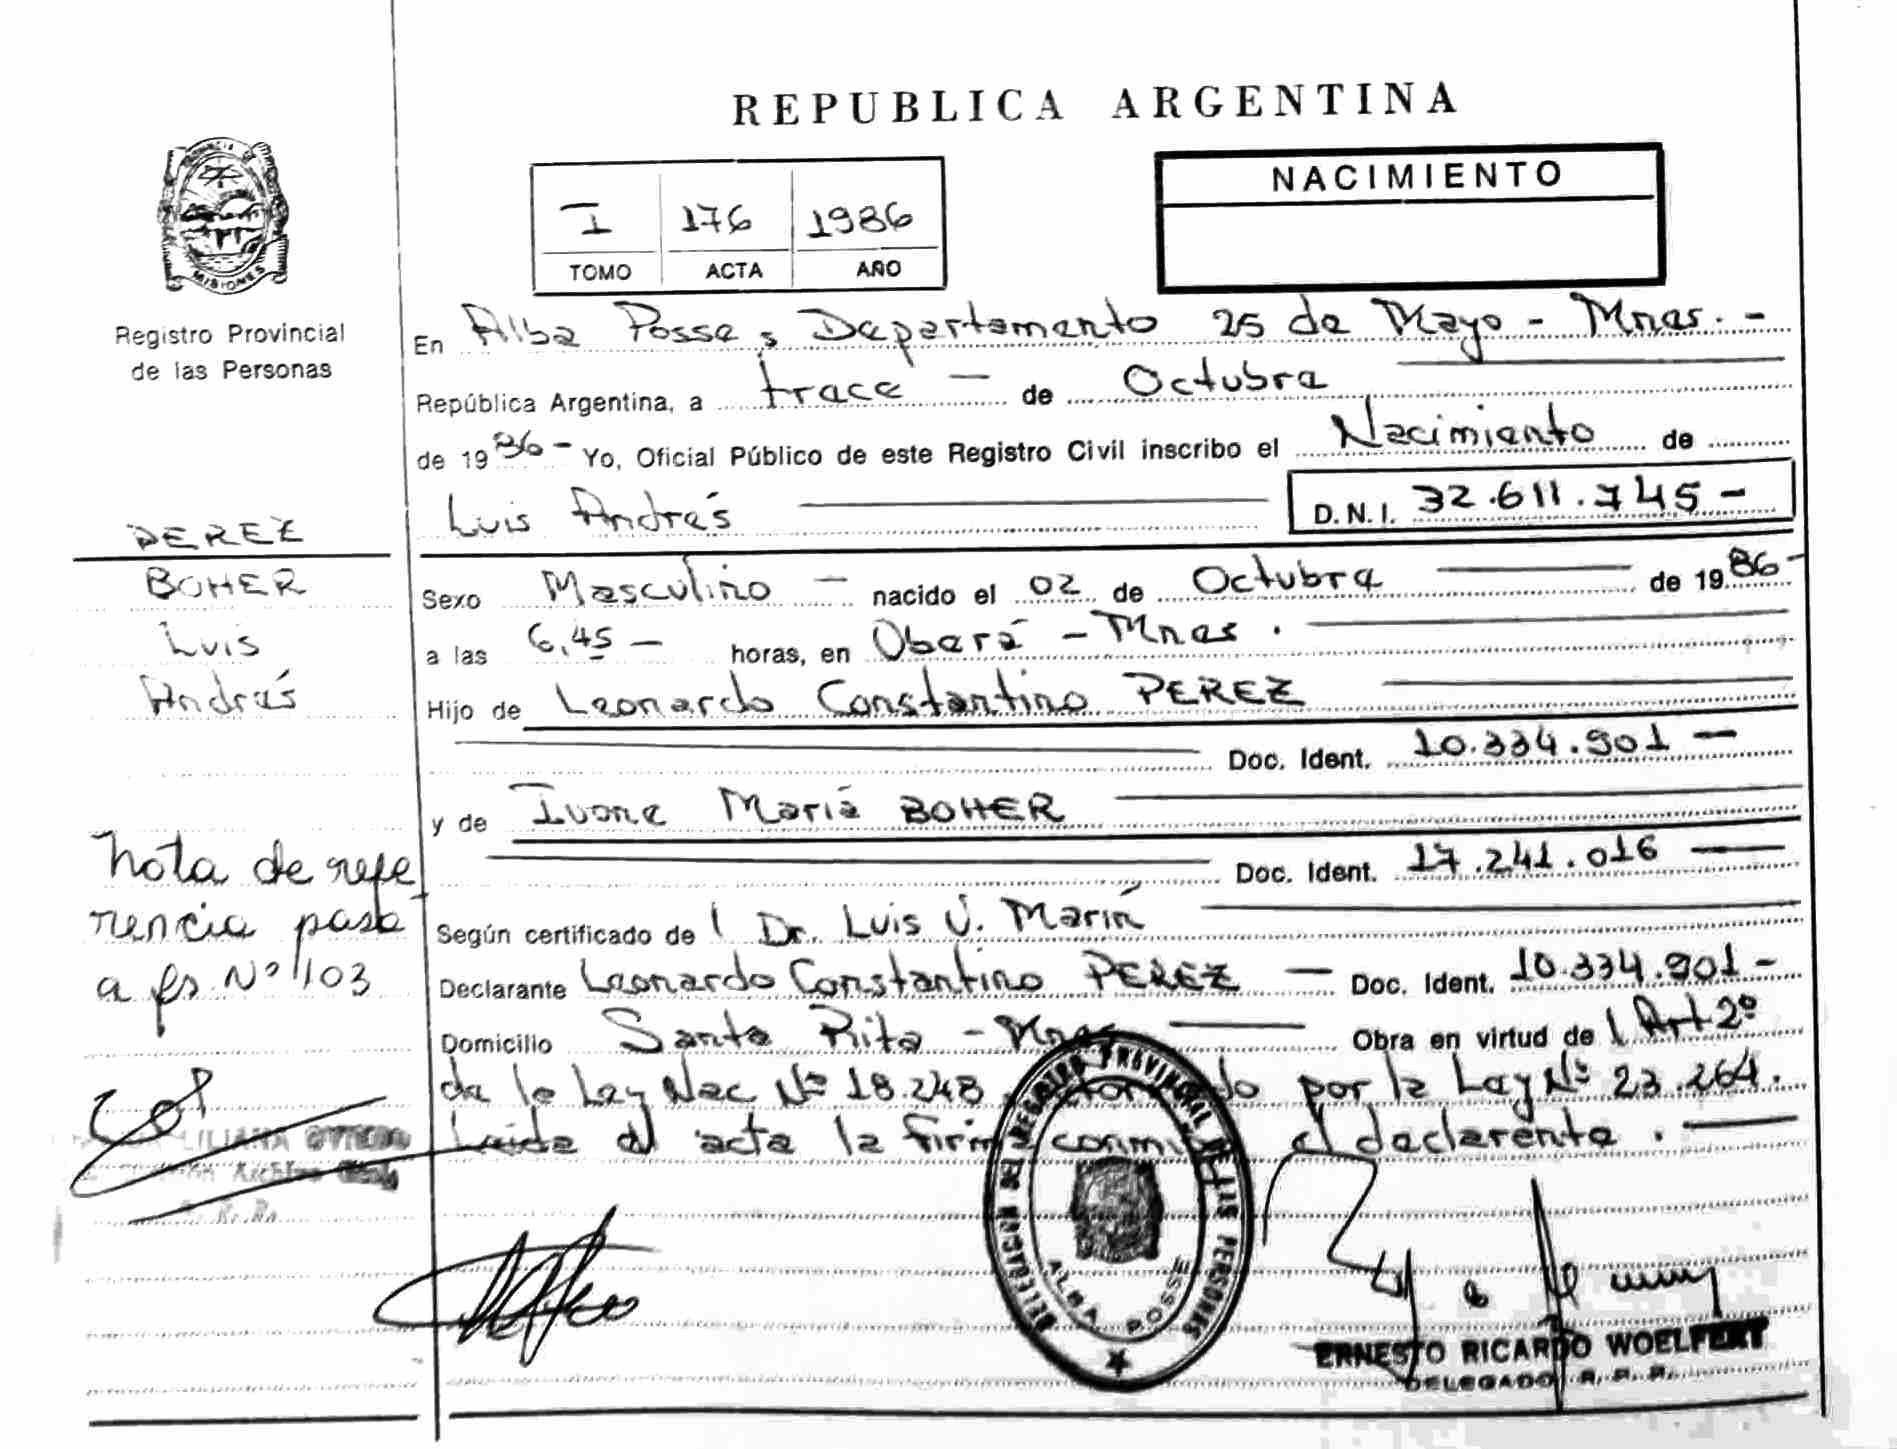 REPUBLICA ARGENTINA
PROVINCIA
MISIONES
Registro Provincial
de las Personas
I 176 1986
TOMO ACTA AÑO
NACIMIENTO
En Alba Posse, Departamento 25 de Mayo - Mnes. -
República Argentina, a trece - de Octubre
de 1986- Yo, Oficial Público de este Registro Civil inscribo el Nacimiento de
Luis Andrés D.N.I. 32.611.745-
Sexo Masculino - nacido el 02 de Octubre de 1986-
a las 6,45 - horas, en Oberá - Mnes.
Hijo de Leonardo Constantino PEREZ
Doc. Ident. 10.334.901 -
y de Ivone María BOHER
Doc. Ident. 17.241.016
Según certificado del Dr. Luis V. Marín
Declarante Leonardo Constantino PEREZ - Doc. Ident. 10.334.901-
Domicilio Santa Rita - Mnes Obra en virtud del Art 2º
de la Ley Nac Nº 18.248, por la Ley Nº 23.264.
Leida el acta la firma conmigo el declarante.
PEREZ
BOHER
Luis
Andrés
Nota de refe
rencia pasa
a fs Nº 103
LILIANA OVIEDO
Archivo
DELEGACION DEL REGISTRO PROVINCIAL DE LAS PERSONAS
ALBA POSSE
ERNESTO RICARDO WOELFERT
DELEGADO R. P. P.